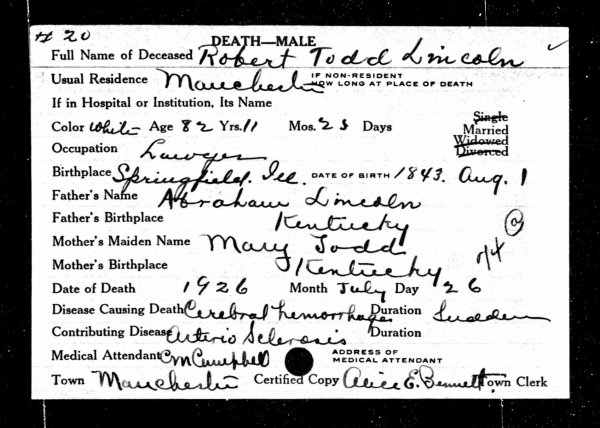 # 20
DEATH—MALE ✓
Full Name of Deceased Robert Todd Lincoln
Usual Residence Manchester IF NON-RESIDENT HOW LONG AT PLACE OF DEATH
If in Hospital or Institution, Its Name
Color White Age 82 Yrs. 11 Mos. 25 Days Single Married Widowed Divorced
Occupation Lawyer
Birthplace Springfield. Ill. DATE OF BIRTH 1843. Aug. 1
Father's Name Abraham Lincoln
Father's Birthplace Kentucky
Mother's Maiden Name Mary Todd
Mother's Birthplace Kentucky
Date of Death 1926 Month July Day 26
Disease Causing Death Cerebral hemorrhages Duration Sudden
Contributing Disease Arterio Sclerosis Duration
Medical Attendant C M Campbell ADDRESS OF MEDICAL ATTENDANT
Town Manchester Certified Copy Alice E. Bennett Town Clerk